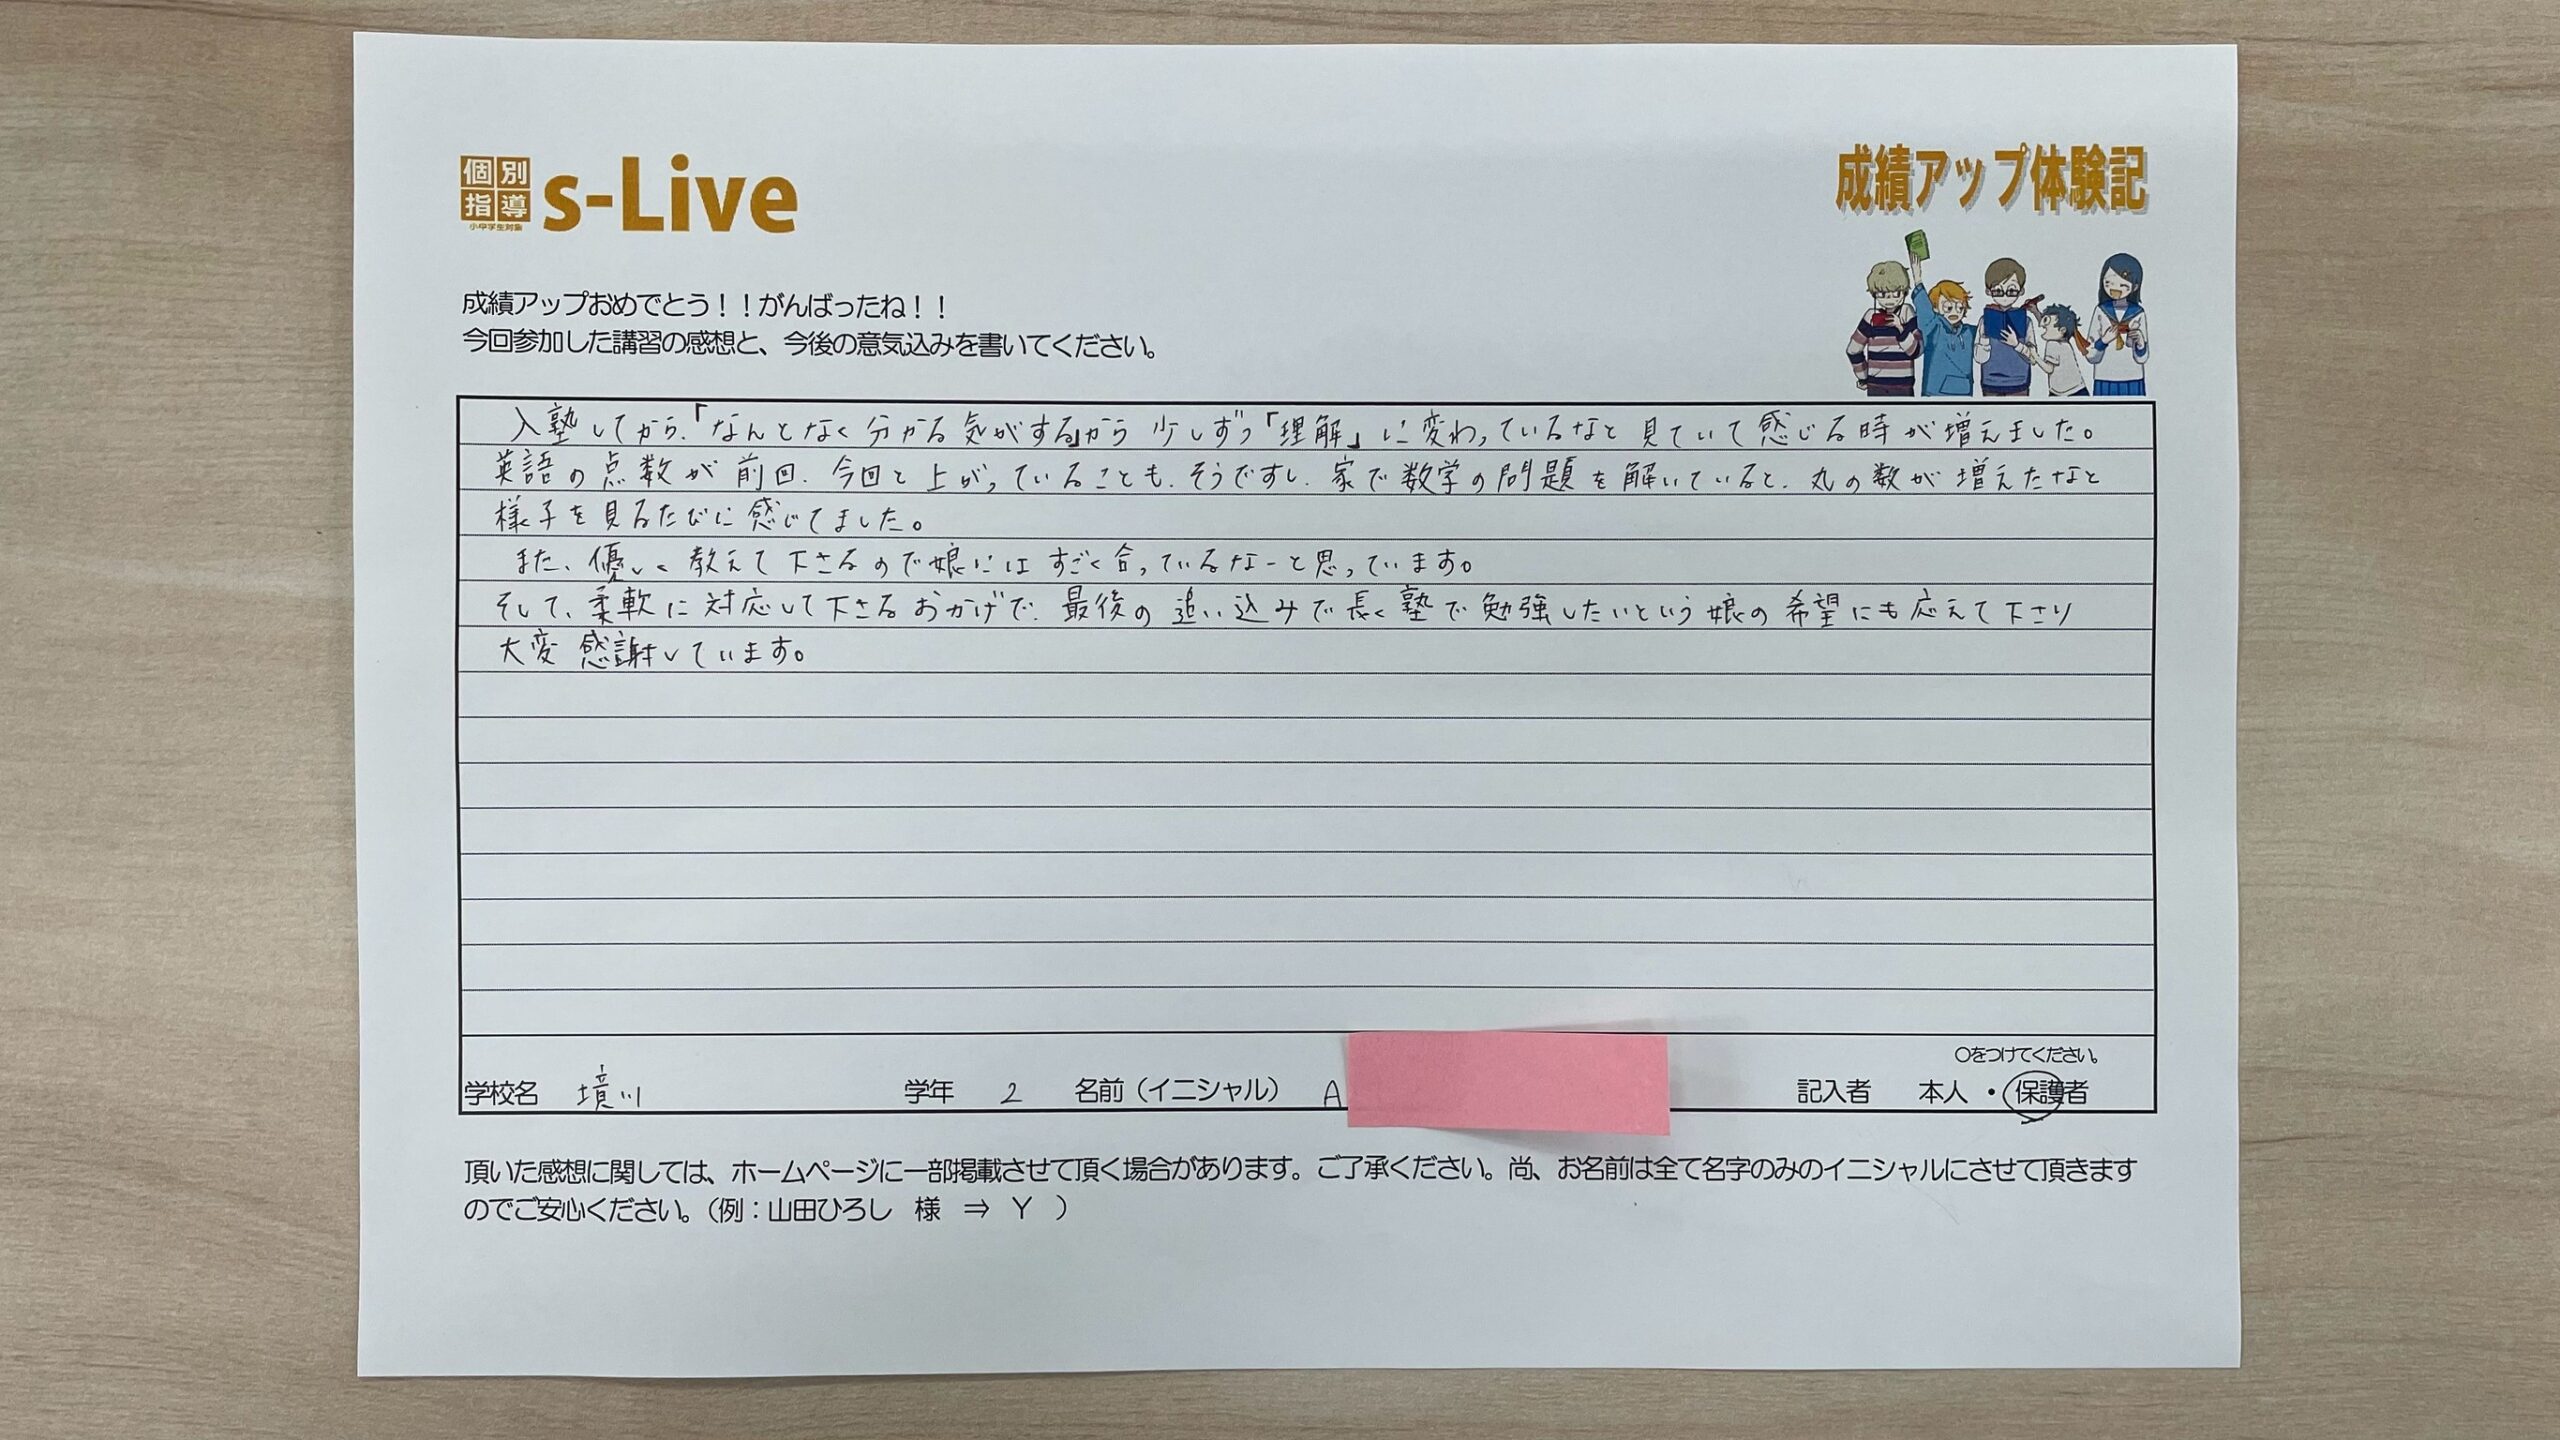 個別指導 s-Live
小中学生対象
成績アップ体験記
成績アップおめでとう！！がんばったね！！
今回参加した講習の感想と、今後の意気込みを書いてください。
入塾してから、「なんとなく分かる気がする」から 少しずつ「理解」に変わっているなと 見ていて感じる時が増えました。
英語の点数が 前回、今回と上がっていることも、そうですし、家で数学の問題を解いていると、丸の数が増えたなと
様子を見るたびに感じてました。
また、優しく教えて下さるので娘にはすごく合っているなーと思っています。
そして、柔軟に対応して下さるおかげで、最後の追い込みで長く塾で勉強したいという娘の希望にも応えて下さり
大変感謝しています。
〇をつけてください。
学校名 境川 学年 2 名前（イニシャル） A 記入者 本人 ・ 保護者
頂いた感想に関しては、ホームページに一部掲載させて頂く場合があります。ご了承ください。尚、お名前は全て名字のみのイニシャルにさせて頂きます
のでご安心ください。（例：山田ひろし 様 ⇒ Y ）